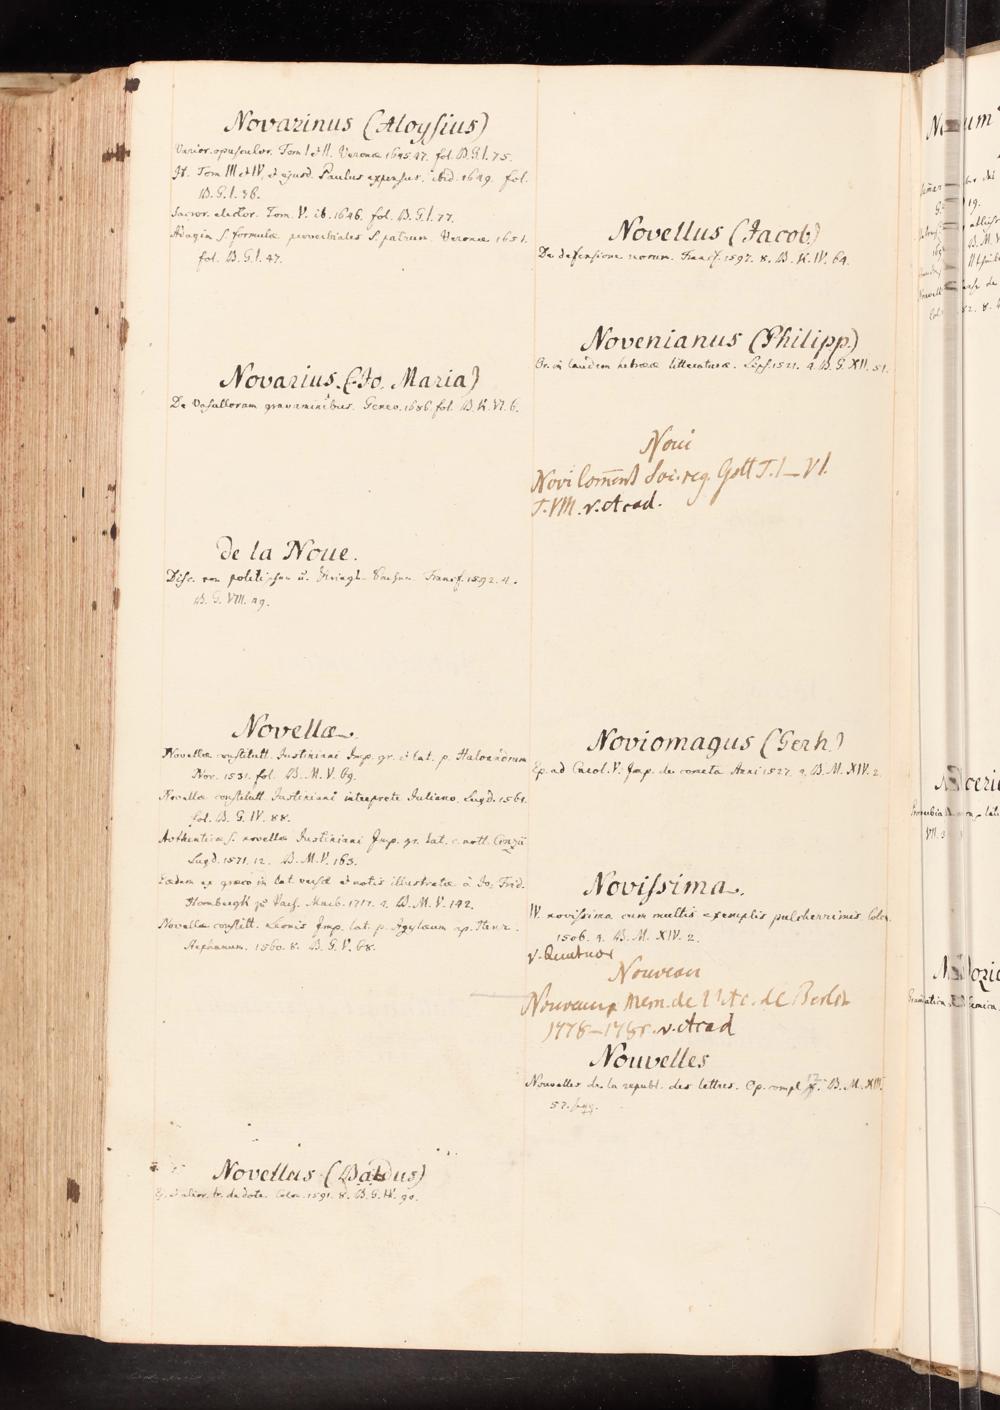 Novarinus (Aloysius)
Varior. opusculor. Tom I et II. Veronæ 1645.47. fol. B.G.I.75.
It. Tom III et IV, et ejusd. Paulus expensus. ibid. 1649. fol.
B.G.I.76.
Sacror. elector. Tom. V. ib. 1646. fol. B.G.I.77.
Adagia s. formulæ proverbiales S. patrum. Veronæ 1651.
fol. B.G.I.47.
Novarius (Jo. Maria)
De Vasallorum gravaminibus. Genev. 1686. fol. B.K.VI.6.
de la Noue.
Disc. von politischen u. Kriegs-Sachen. Francf. 1592. 4.
B.G.VIII.49.
Novellæ.
Novellæ constitutt. Justiniani Imp. gr. et lat. p. Haloandrum
Nor. 1531. fol. B.M.V.69.
Novellæ constitutt. Justiniani interprete Juliano. Lugd. 1561.
fol. B.G.IV.88.
Authenticæ s. novellæ Justiniani Imp. gr. lat. c. nott. Contii
Lugd. 1571. 12. B.M.V.163.
Eædem ex græco in lat. versæ et notis illustratæ à Jo. Frid.
Hombergk zu Vach. Marb. 1717. 4. B.M.V.142.
Novellæ constitt. Leonis Imp. lat. p. Agylæum ap. Henr.
Stephanum. 1560. 8. B.G.V.68.
Novellus (Baldus)
Ej. et alior. tr. de dote. Colon. 1591. 8. B.G.IV.90.
Novellus (Jacob)
De defensione reorum. Francf. 1597. 8. B.K.IV.64.
Novenianus (Philipp.)
Or. in laudem hebrææ litteraturæ. Lips. 1521. 4. B.G.XII.51.
Noui
Novi Com̄ent Soc. reg. Gott T.I–VI.
T.VIII. v. Acad.
Noviomagus (Gerh.)
Ep. ad Carol. V. Imp. de cometa Anni 1527. 4. B.M.XIV.2.
Novissima.
IV. novissima cum multis exemplis pulcherrimis Colon.
1506. 4. B.M.XIV.2.
v. Quatuor
Nouveau
Nouveaux Mem. de l'Ac. de Berlin
1778–1785. v. Acad
Nouvelles
Nouvelles de la republ. des lettres. Op. compl. B.M.XIII.
57. sqq.